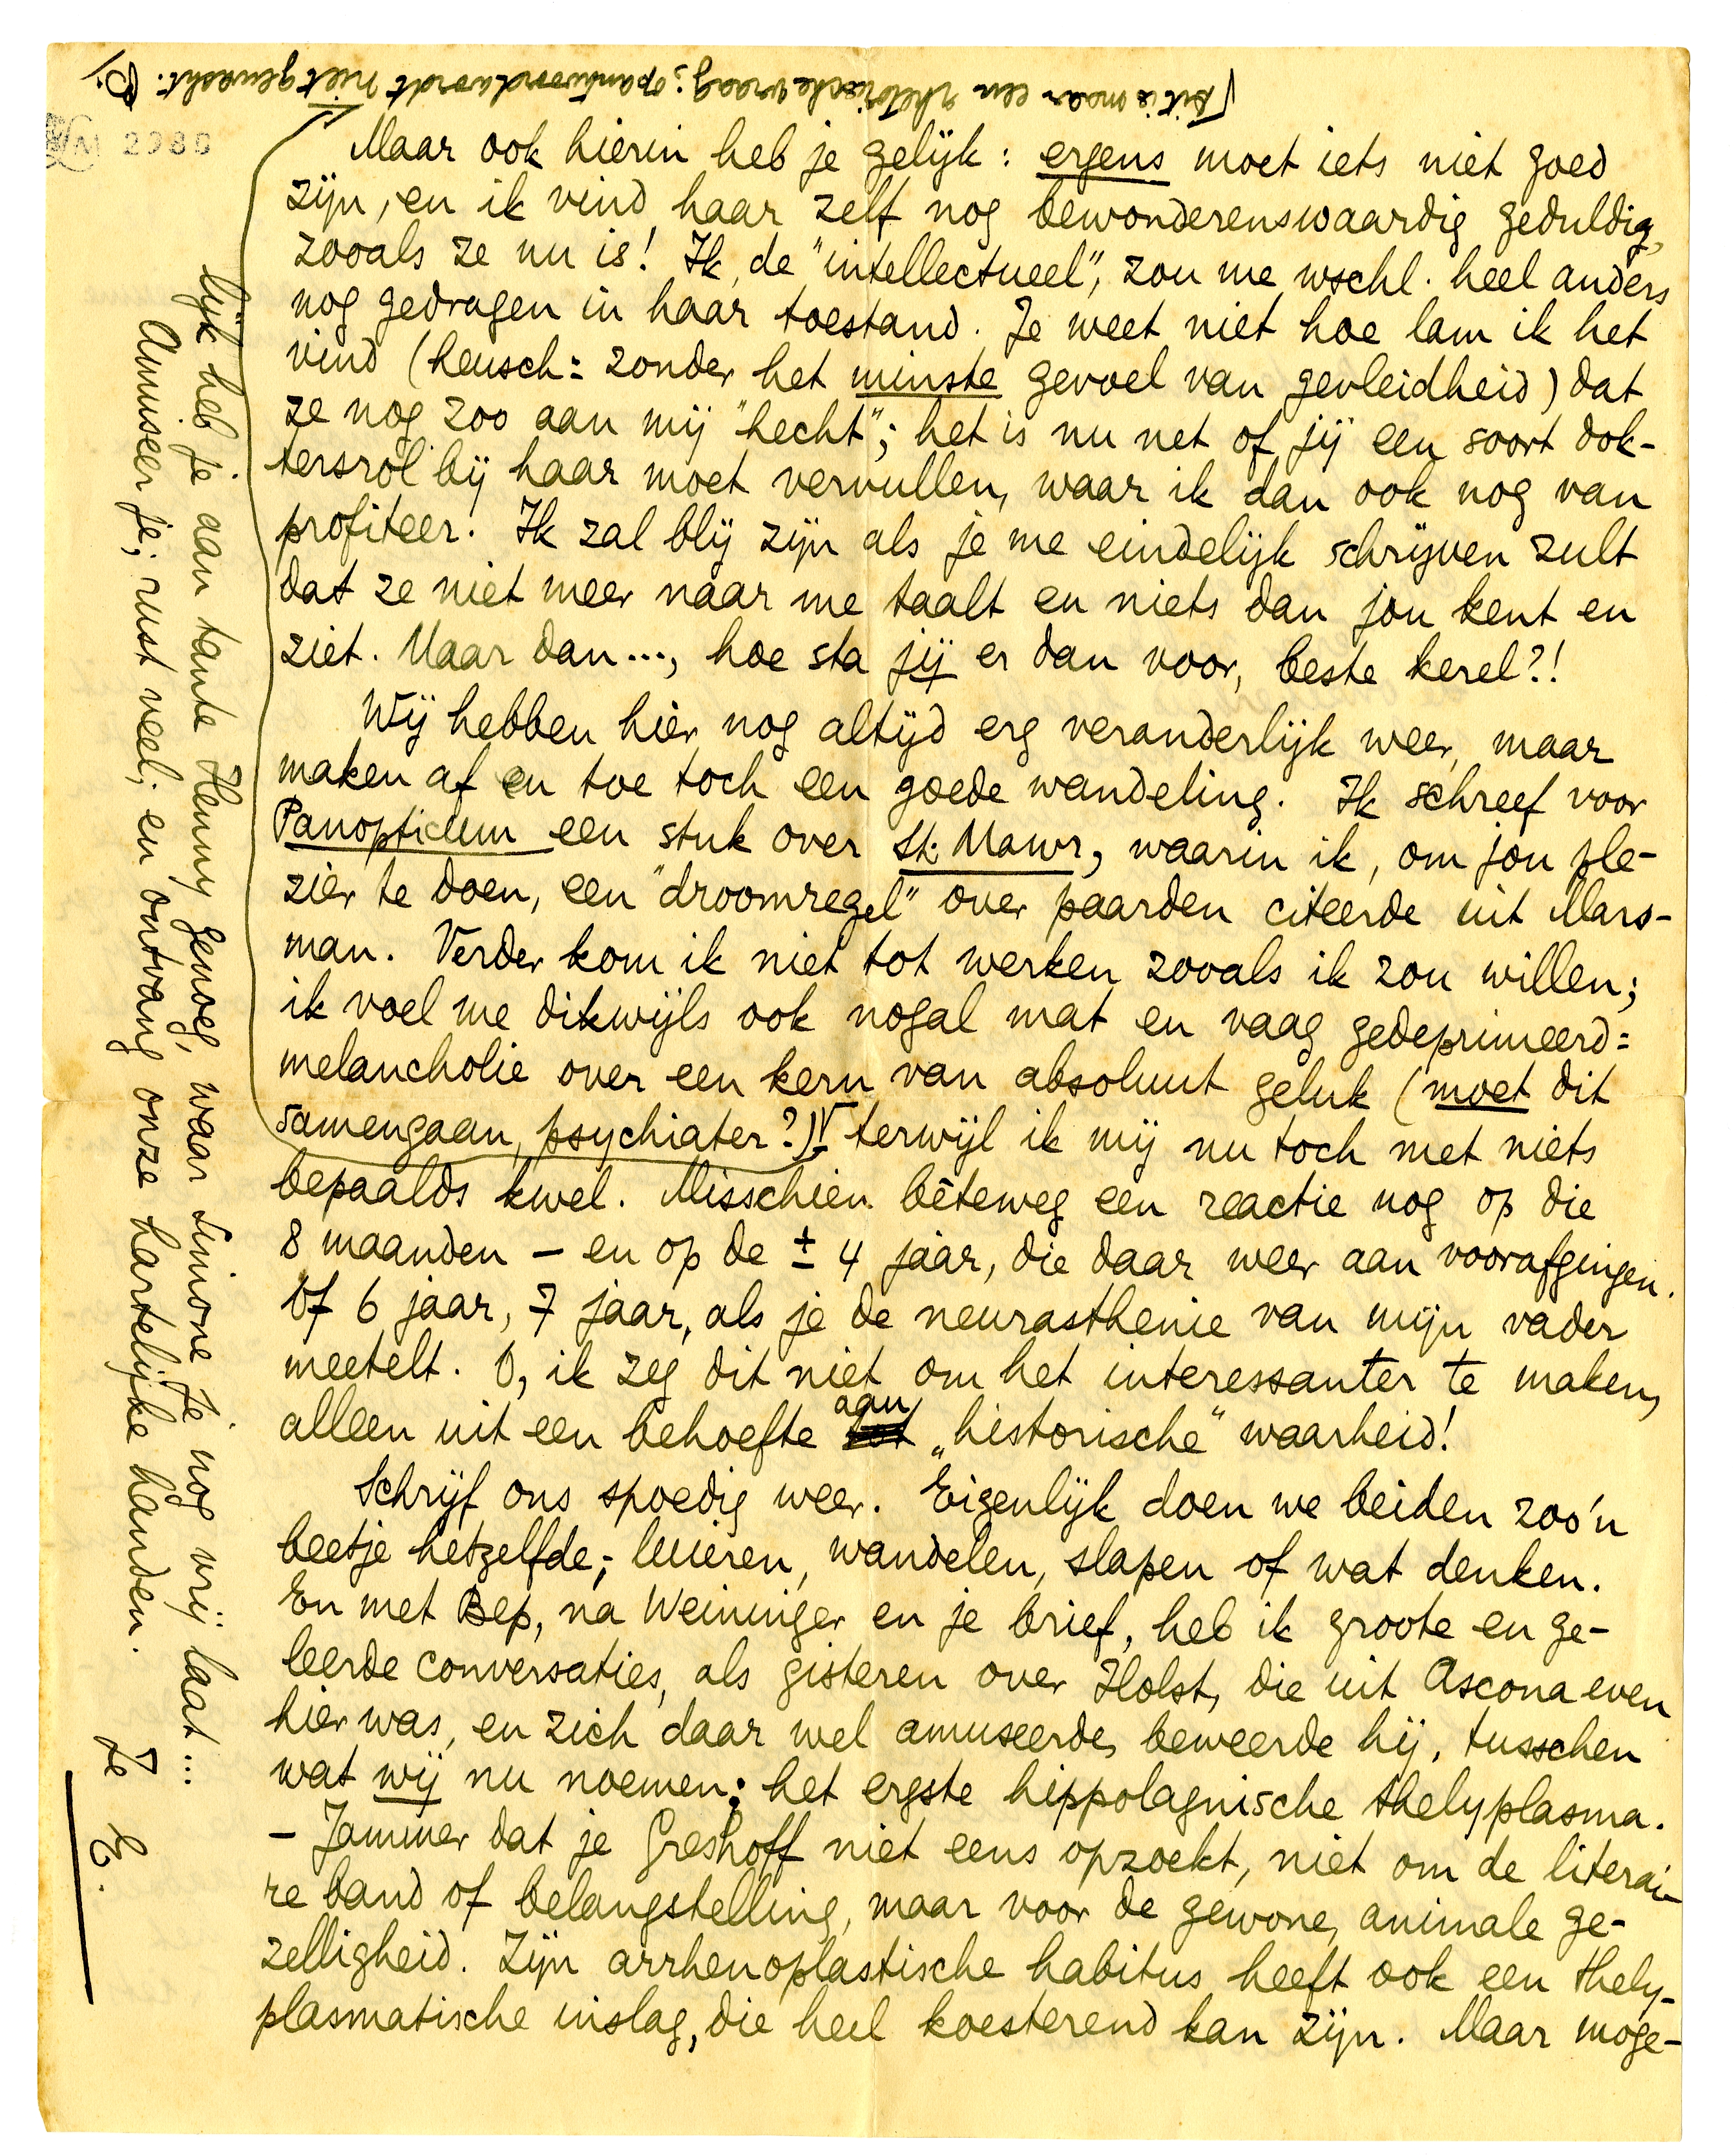 [Dit is maar een rhetorische vraag; op antwoord wordt niet gewacht.
LM 2980
Maar ook hierin heb je gelijk: ergens moet iets niet goed
zijn, en ik vind haar zelf nog bewonderenswaardig geduldig,
zooals ze nu is! Ik, de "intellectueel", zou me wschl. heel anders
nog gedragen in haar toestand. Je weet niet hoe lam ik het
vind (heusch: zonder het minste gevoel van gevleidheid) dat
ze nog zoo aan mij "hecht"; het is nu net of jij een soort dok-
tersrol bij haar moet vervullen, waar ik dan ook nog van
profiteer. Ik zal blij zijn als je me eindelijk schrijven zult
dat ze niet meer naar me taalt en niets dan jou kent en
ziet. Maar dan..., hoe sta jij er dan voor, beste kerel?!
Wij hebben hier nog altijd erg veranderlijk weer, maar
maken af en toe toch een goede wandeling. Ik schreef voor
Panopticum een stuk over St. Mawr, waarin ik, om jou ple-
zier te doen, een "droomregel" over paarden citeerde uit Mars-
man. Verder kom ik niet tot werken zooals ik zou willen;
ik voel me dikwijls ook nogal mat en vaag gedeprimeerd:
melancholie over een kern van absoluut geluk (moet dit
samengaan, psychiater?) terwijl ik mij nu toch met niets
bepaalds kwel. Misschien bêteweg een reactie nog op die
8 maanden – en op de ± 4 jaar, die daar weer aan voorafgingen.
Of 6 jaar, 7 jaar, als je de neurasthenie van mijn vader
meetelt. O, ik zeg dit niet om het interessanter te maken,
alleen uit een behoefte aan „historische" waarheid!
Schrijf ons spoedig weer. Eigenlijk doen we beiden zoo'n
beetje hetzelfde; luieren, wandelen, slapen of wat denken.
En met Bep, na Weininger en je brief, heb ik groote en ge-
leerde conversaties, als gisteren over Holst, die uit Ascona even
hier was, en zich daar wel amuseerde, beweerde hij, tusschen
wat wij nu noemen: het ergste hippolagnische thelyplasma.
– Jammer dat je Greshoff niet eens opzoekt, niet om de literai-
re band of belangstelling, maar voor de gewone, animale ge-
zelligheid. Zijn arrhenoplastische habitus heeft ook een thely-
plasmatische inslag, die heel koesterend kan zijn. Maar moge-
lijk heb je aan tante Henny genoeg, waar Simone je nog vrij laat...
Amuseer je; rust veel; en ontvang onze hartelijke handen.
Je E.